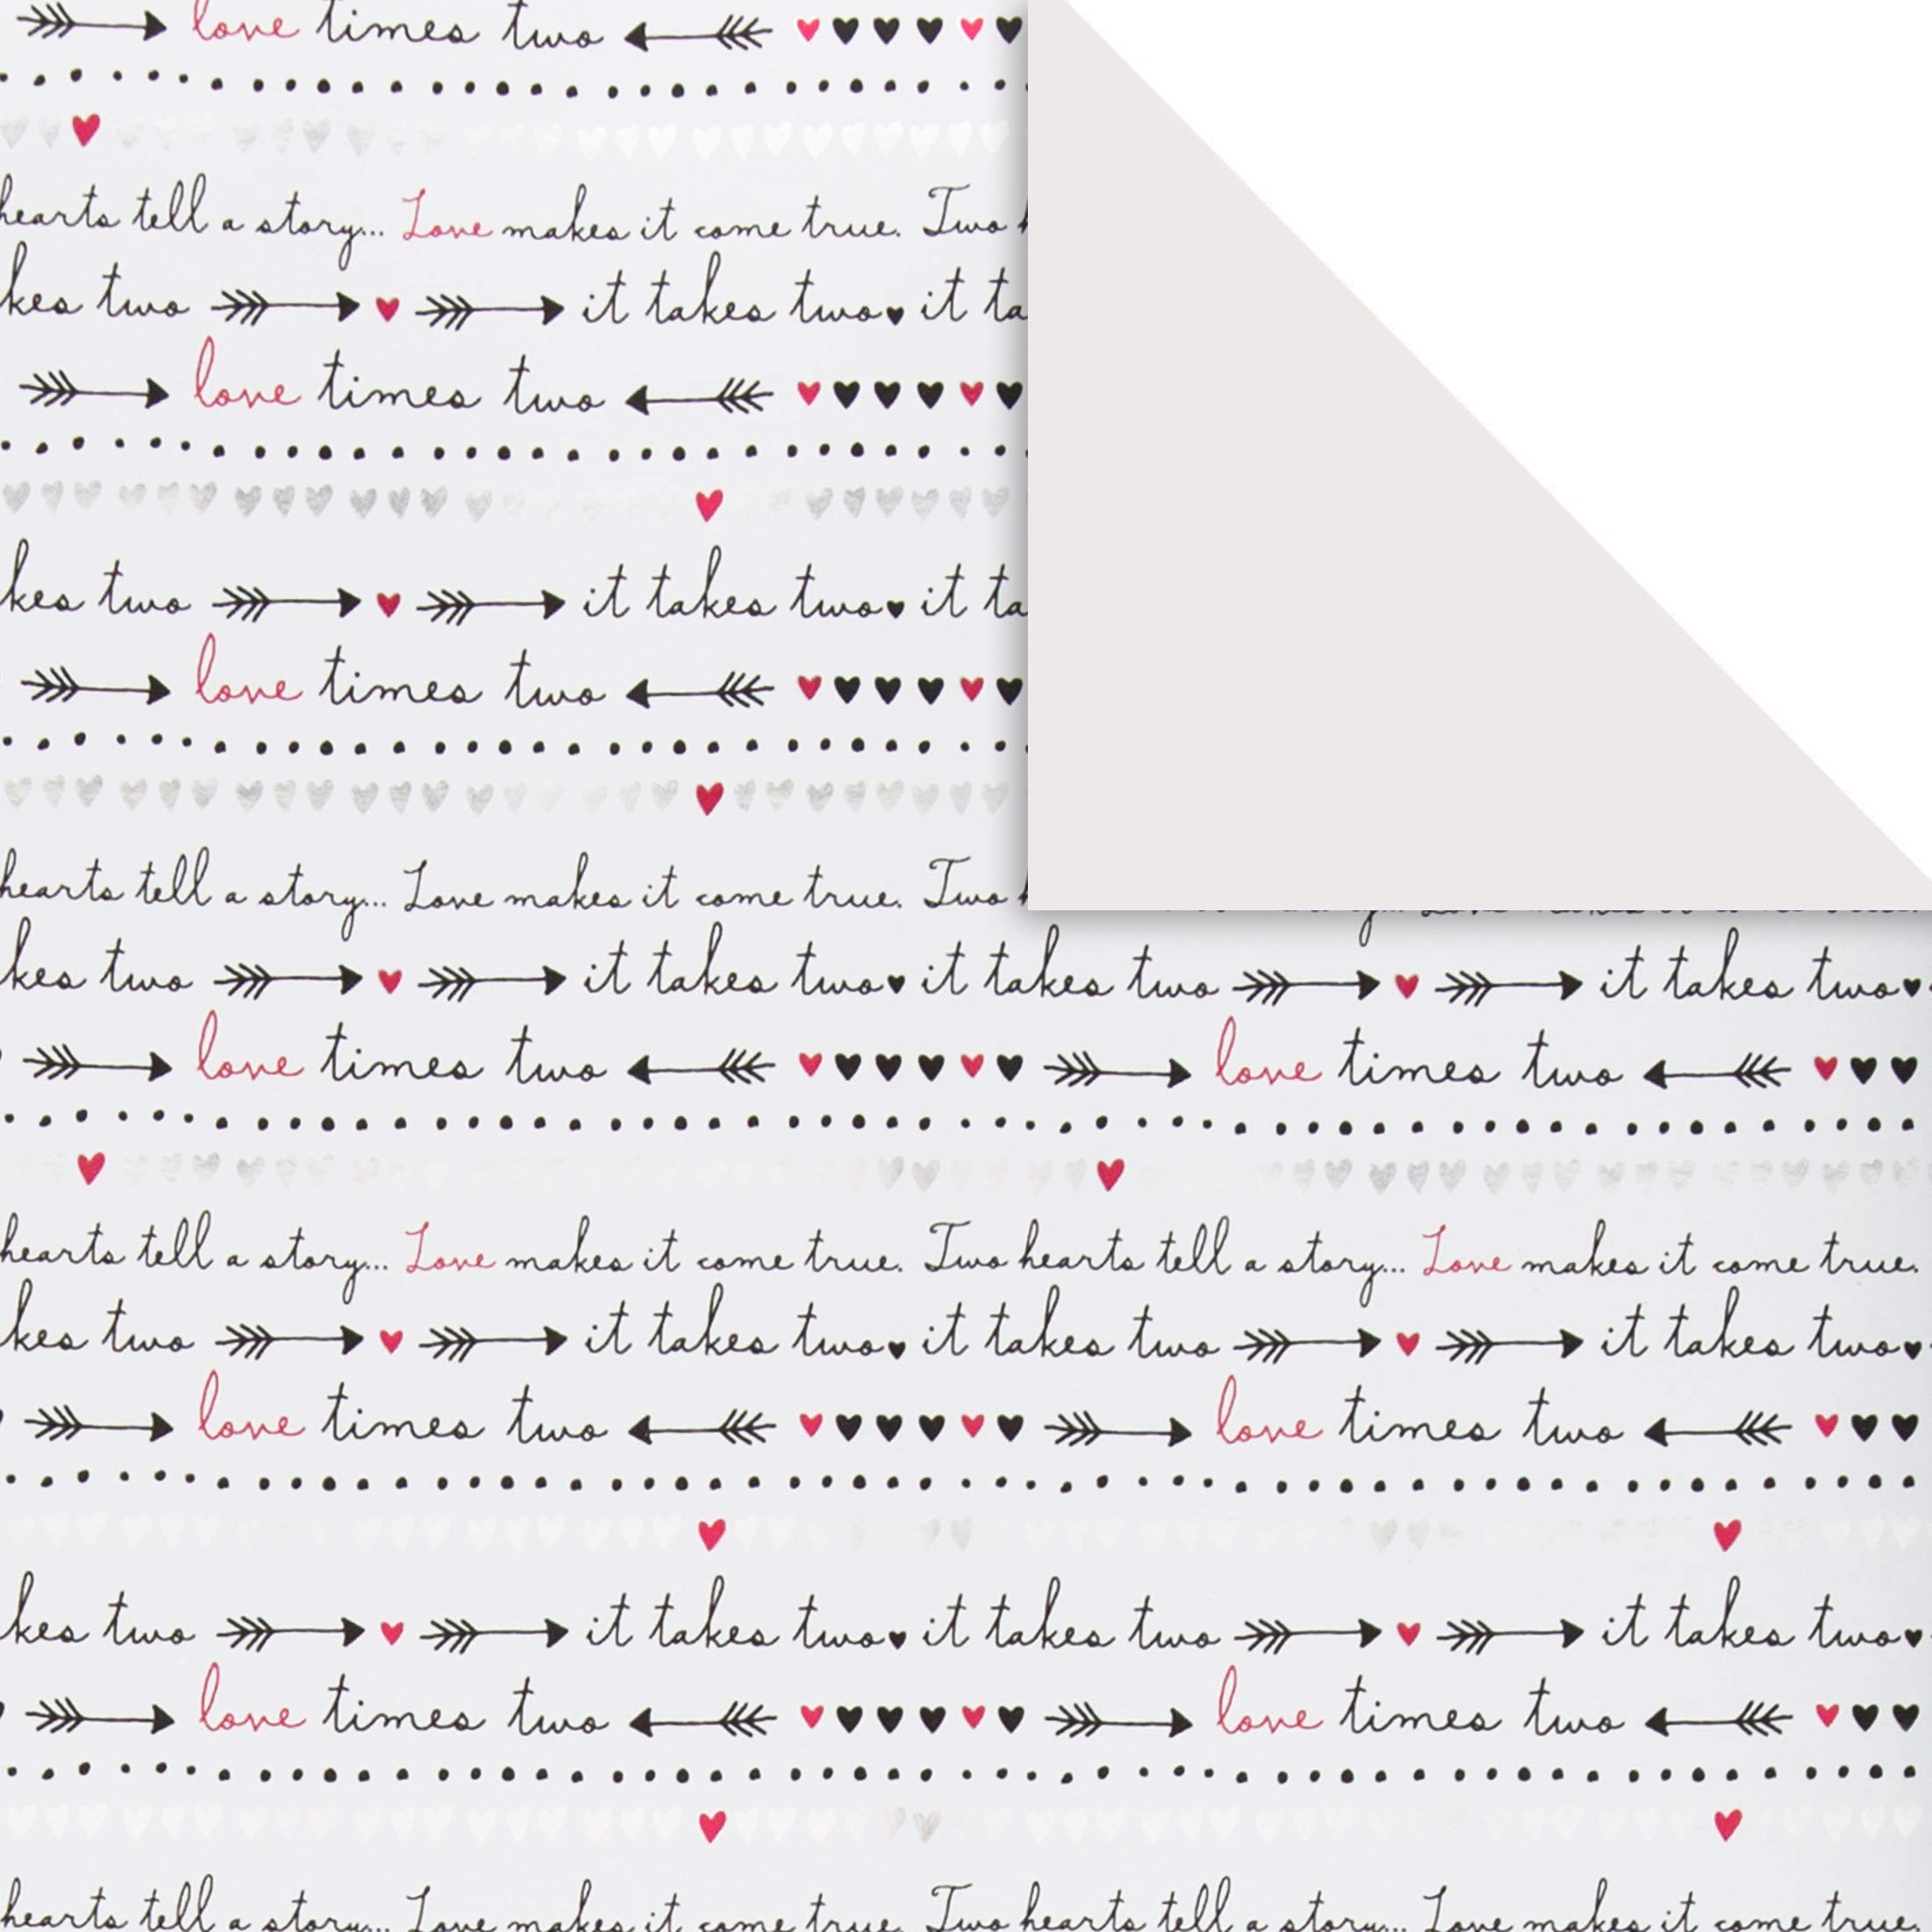 love times two
hearts tell a story... Love makes it come true. Two
kes two it takes two it ta
love times two
kes two it takes two it ta
love times two
hearts tell a story... Love makes it come true. Two
kes two it takes two it takes two it takes two
love times two love times two
hearts tell a story... Love makes it come true. Two hearts tell a story... Love makes it come true.
kes two it takes two it takes two it takes two
love times two love times two
kes two it takes two it takes two it takes two
love times two love times two
hearts tell a story... Love makes it come true. Two hearts tell a story... Love makes it come true.